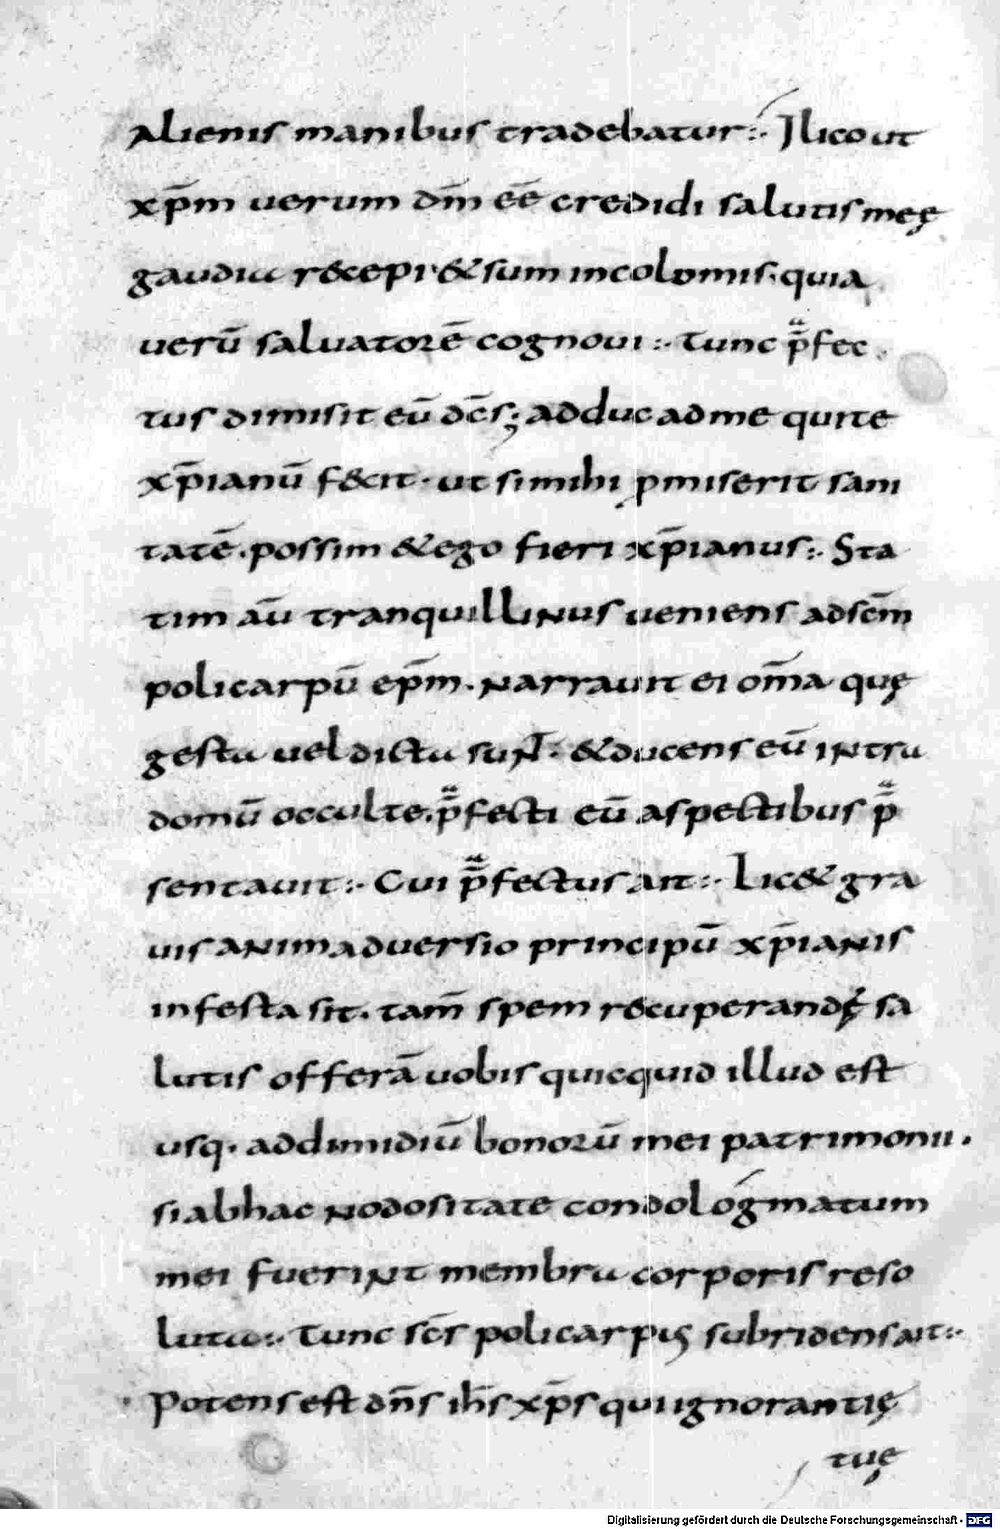 alienis manibus tradebatur:· Ilico ut
xp̄m uerum dm̄ eē credidi salutis meę
gaudia recepi· & sum incolomis· quia
uerū saluatorē cognoui:· Tunc p̄fec
tus dimisit eū dc̄s; adduc ad me qui te
xp̄ianū fecit· ut si mihi ꝓmiserit sani
tatē· possim & ego fieri xp̄ianus:· Sta
tim aū tranquillinus ueniens ad scm̄
policarpū ep̄m· narrauit ei om̄a quę
gesta uel dicta sunt· & ducens eū intra
domū occulte· p̄fecti eū aspectibus p̄
sentauit:· Cui p̄fectus ait:· Lic& gra
uis animaduersio principū xp̄ianis
infesta sit· tam̄ spem recuperandę sa
lutis offerā uobis quicquid illud est
usq· ad dimidiū bonorū mei patrimonii·
si ab hac nodositate condologmatum
mei fuerint membra corporis reso
luta:· Tunc scs̄ policarpus subridens ait:·
Potens est dn̄s ih̄s xp̄s qui ignorantię
tuę
Digitalisierung gefördert durch die Deutsche Forschungsgemeinschaft - DFG